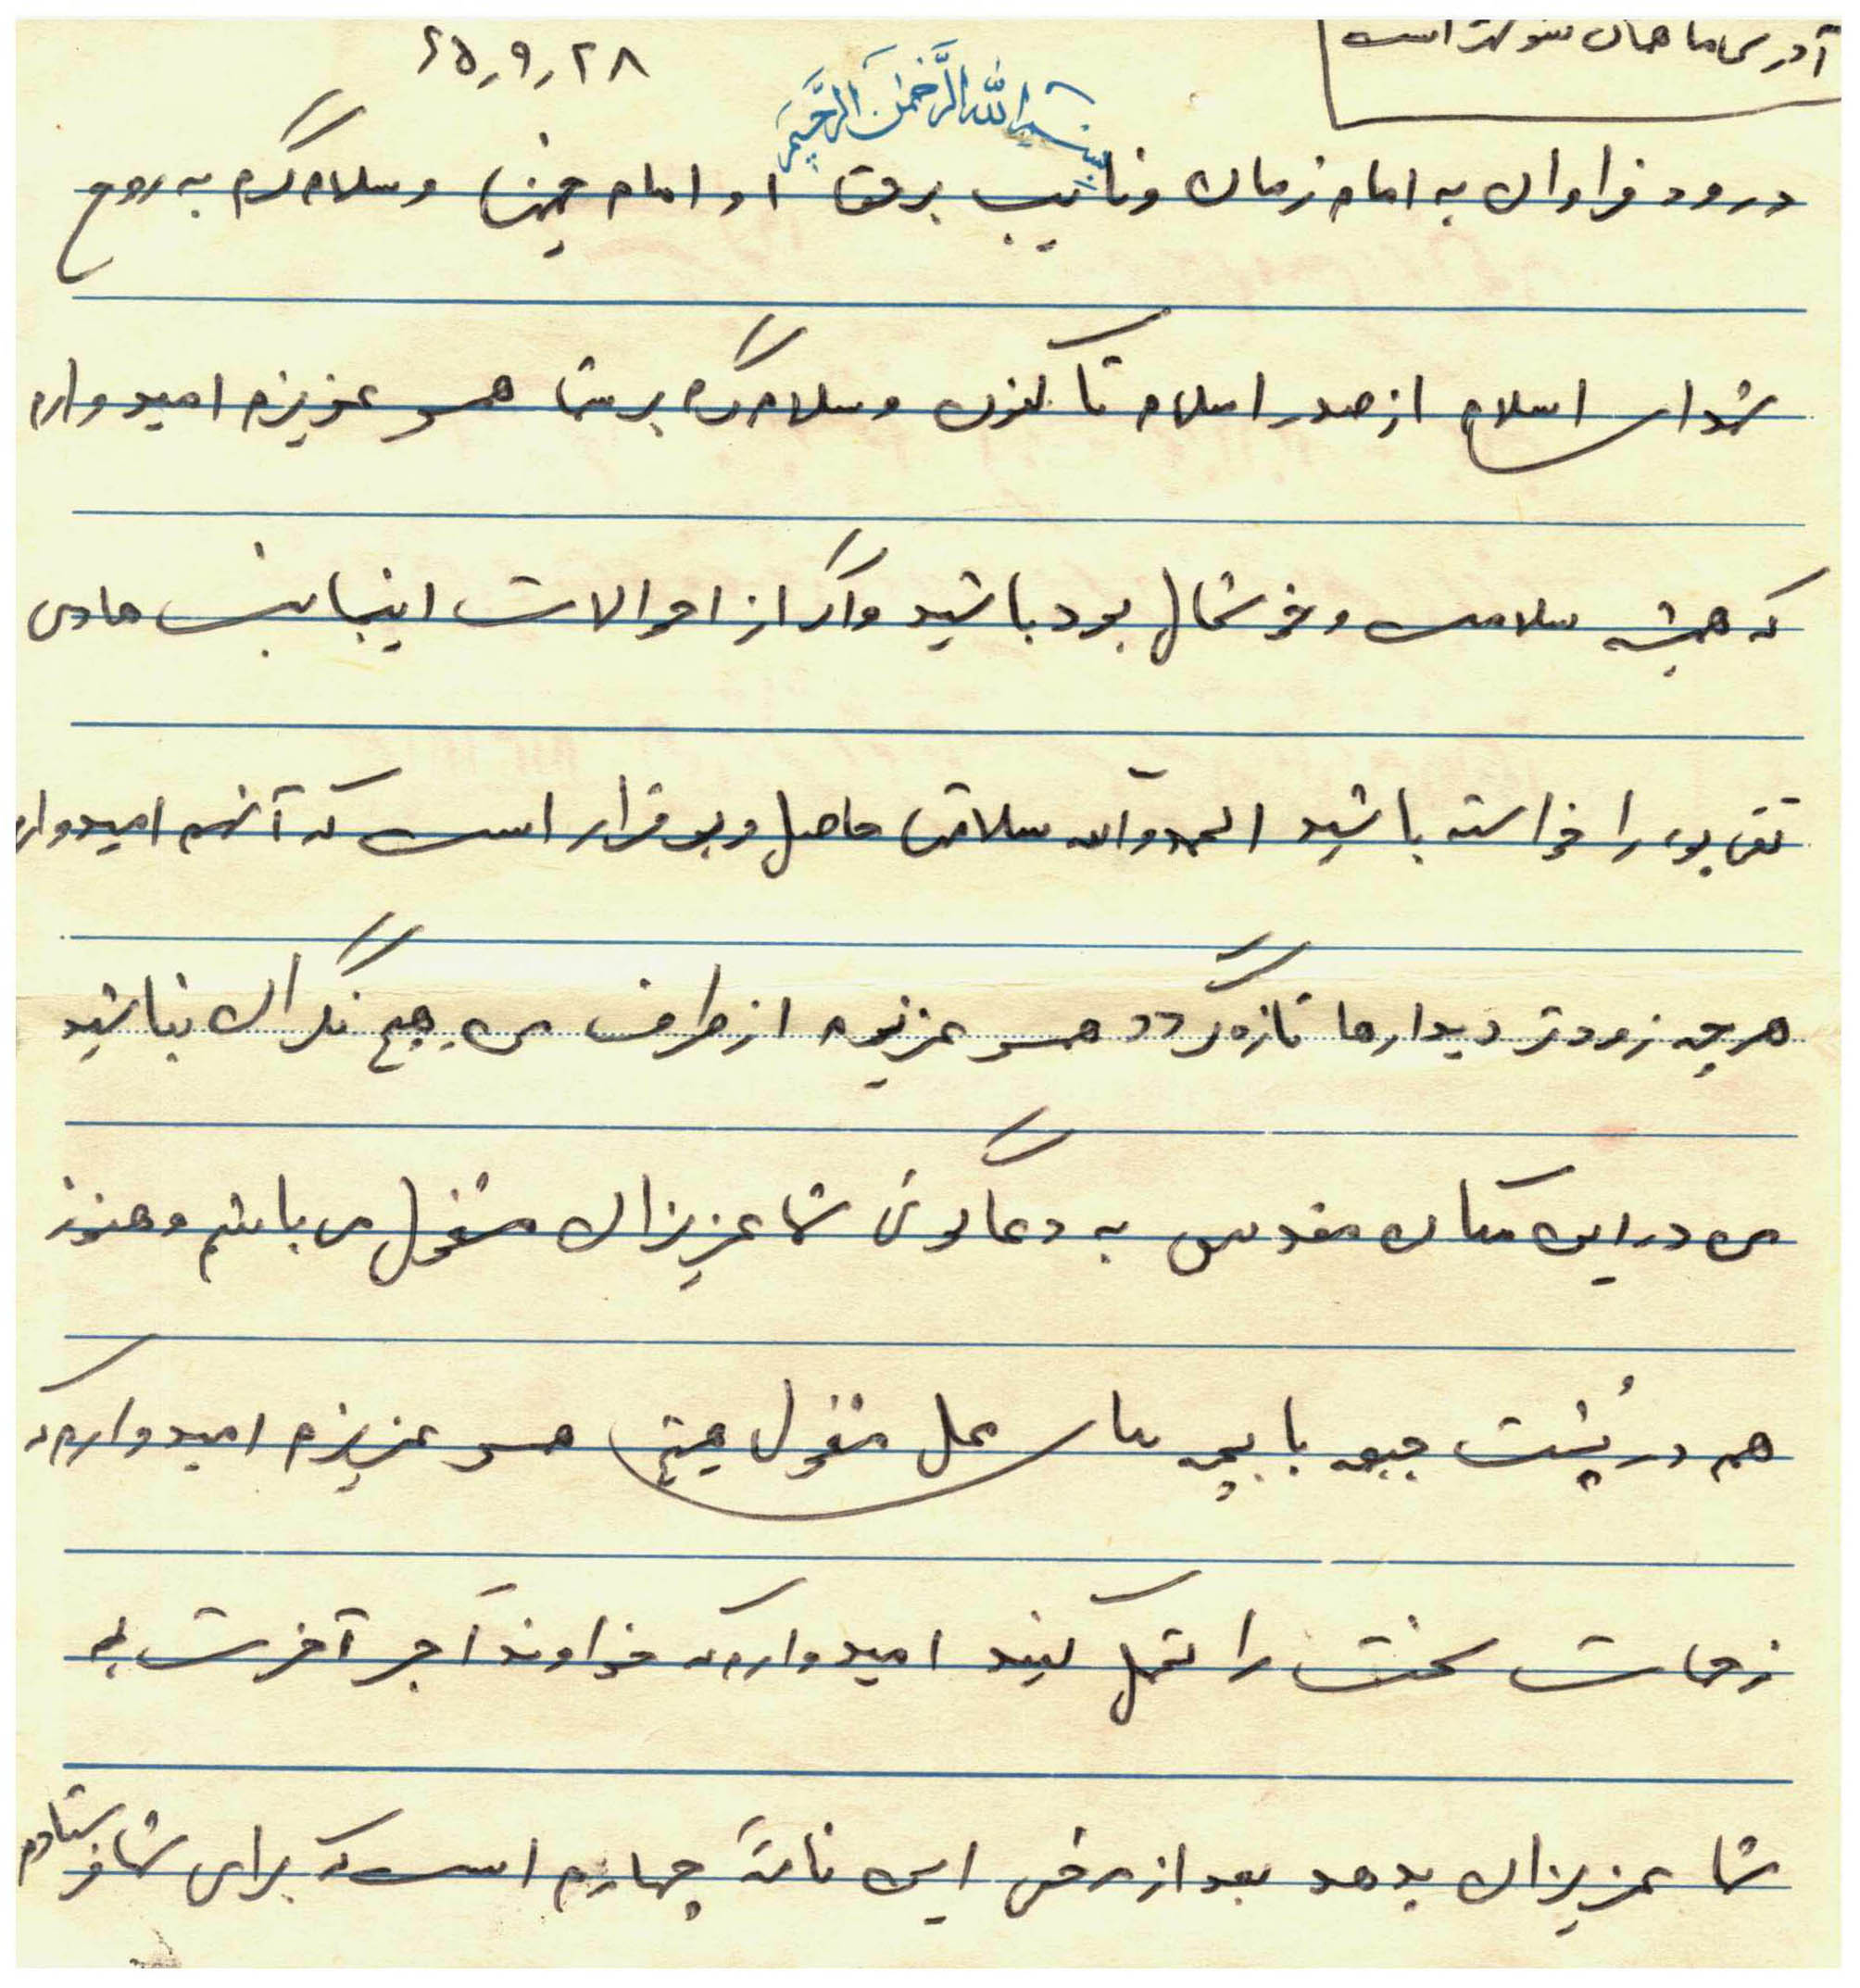 آدرس ما همان سو متر است
۶۵٫۹٫۲۸
بسم الله الرحمن الرحیم
درود فراوان به امام زمان و نایب برحق او امام خمینی و سلام گرم به روح
شهدای اسلام از صدر اسلام تا کنون و سلام گرم بر شما همسر عزیزم امیدوارم
که همیشه سلامت و خوشحال بود باشید واگر از احوالات اینجانب هادی
تقی پور را خواسته باشید الحمدوالله سلامتی حاصل و برقرار است که آنهم امیدوارم
هرچه زودتر دیدارها تازه گردد همسر عزیزم از طرف من هیچ نگران نباشید
من در این مکان مقدس به دعاگوئی شما عزیزان مشغول می باشم و هنوز
هم در پُشت جبهه با بچه های محل مشغول هستیم همسر عزیزم امیدوارم که
زحمات سخت را تحمل کنید امیدوارم که خداوند آجر آخرت به
شما عزیزان بدهد بعد از مرخصی این نامۀ چهارم است که برای شما فرستادم